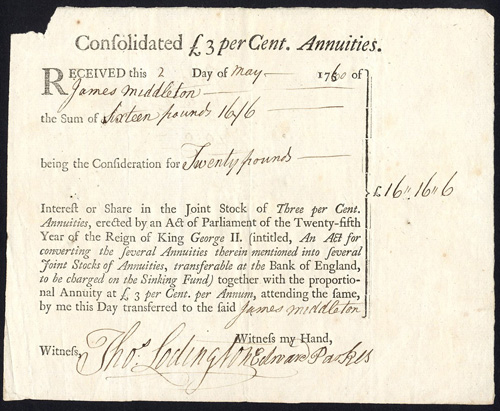 Consolidated £3 per Cent. Annuities.
RECEIVED this 2 Day of May 1760 of
James Middleton
the Sum of Sixteen pounds 16/6
being the Consideration for Twenty pounds
£16"16"6
Interest or Share in the Joint Stock of Three per Cent.
Annuities, erected by an Act of Parliament of the Twenty-fifth
Year of the Reign of King George II. (intitled, An Act for
converting the several Annuities therein mentioned into several
Joint Stocks of Annuities, transferable at the Bank of England,
to be charged on the Sinking Fund) together with the proportio-
nal Annuity at £3 per Cent. per Annum, attending the same,
by me this Day transferred to the said James Middleton
Witness my Hand,
Witness, Thos. Lodington Edward Parkes